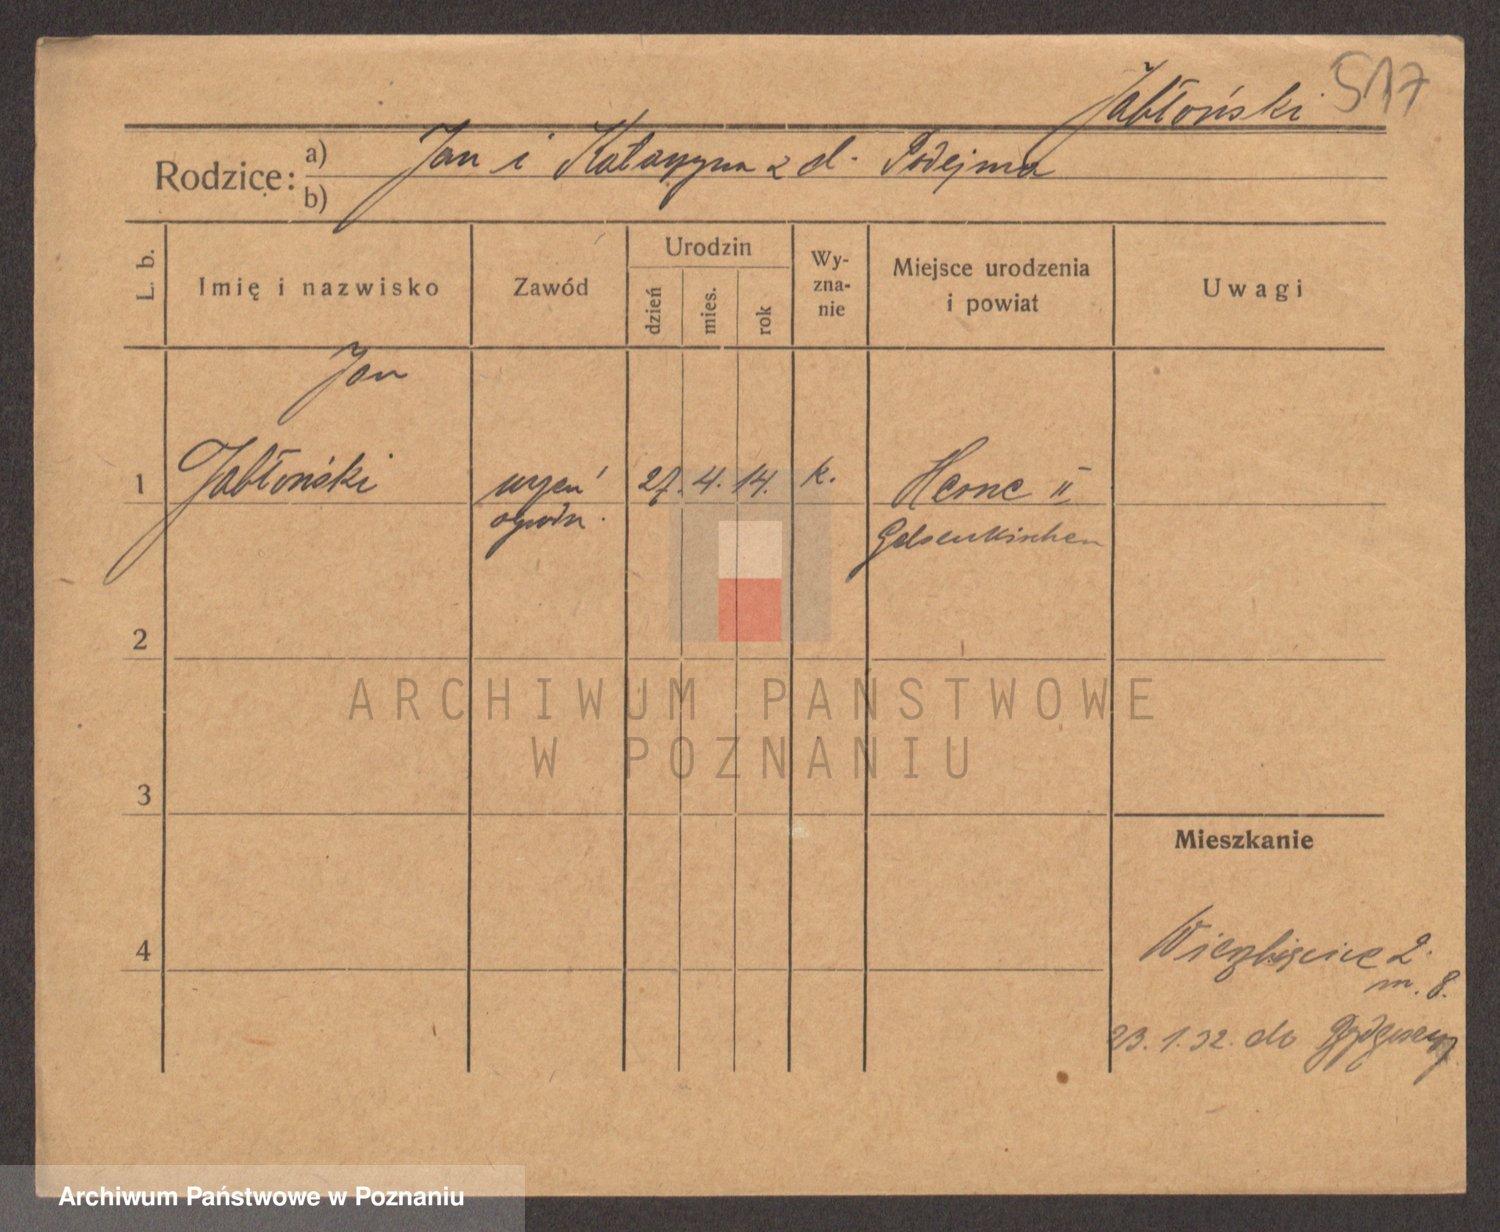 Jabłoński 517
Rodzice: a) Jan i Katarzyna z d. Podejma
b)
L. b. Imię i nazwisko Zawód Urodzin dzień mies. rok Wy-zna-nie Miejsce urodzenia i powiat Uwagi
Jan
1 Jabłoński uczeń 27. 4. 14. k. Herne II
ogrodn. Gelsenkirchen
2
ARCHIWUM PANSTWOWE
W POZNANIU
3
Mieszkanie
4
Wierzbięcice 2.
m. 8.
23.1.32. do Bydgoszczy
Archiwum Państwowe w Poznaniu